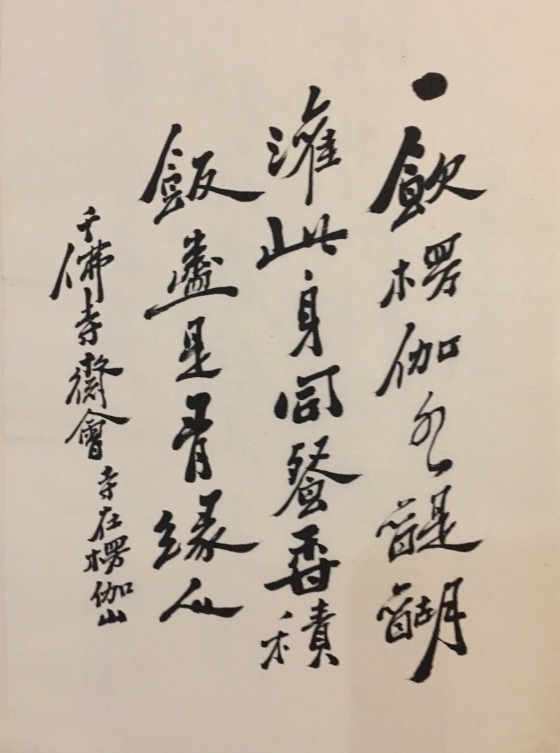 飲楞伽水醍醐
灌此身同餐香積
飯盡是有緣人
千佛寺齋會寺在楞伽山